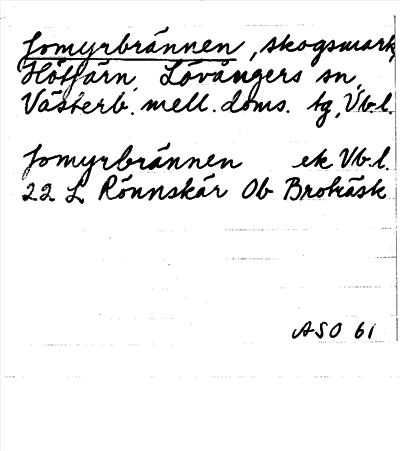 Jomyrbrännen, skogsmark
Hötjärn, Lövångers sn,
Västerb. mell. doms. tg, Vb.l.
Jomyrbrännen ek Vb.l.
22 L Rönnskär Ob Broträsk
ASO 61